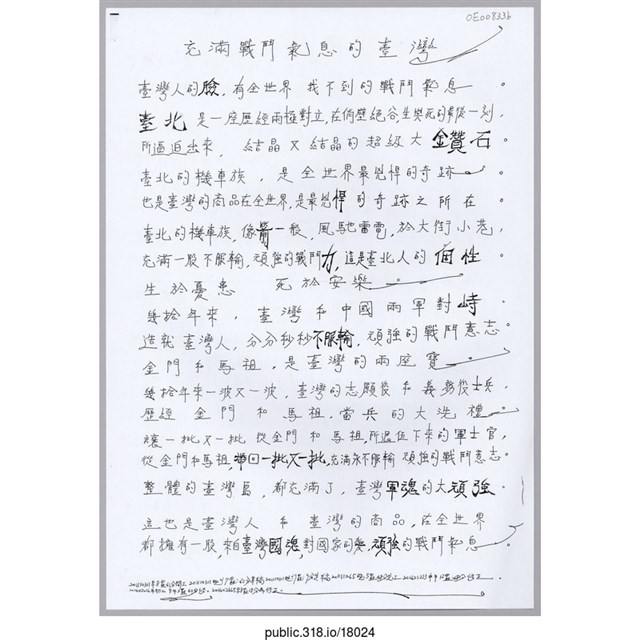 0E008336
充滿戰鬥氣息的臺灣
臺灣人的臉，有全世界 找不到的戰鬥氣息。
臺北 是一座歷經兩極對立，在俏壁絕谷生與死的最後一刻，
所逼迫出來， 結晶又結晶的超級大金贊石。
臺北的機車族，是全世界最兇悍的奇跡
也是臺灣的商品在全世界，是最兇悍的奇跡之所在
臺北的機車族，像箭一般，風馳雷電，於大街小巷，
充滿一股不服輸，頑強的戰鬥力，這是臺北人的個性
生於憂患 死於安樂
幾拾年來， 臺灣和中國兩軍對峙
造就臺灣人，分分秒秒不服輸，頑強的戰鬥意志。
金門和馬祖，是臺灣的兩座寶
幾拾年來一波又一波，臺灣的志願役和義務役士兵，
歷經 金門 和 馬祖，當兵的大洗禮
讓一批又一批 從金門 和 馬祖，所退伍下來的軍士官，
從金門和馬祖，帶回一批又一批，充滿永不服輸 頑強的戰鬥意志。
整體的臺灣島，都充滿了，臺灣軍魂的大頑強
這也是臺灣人 和 臺灣的商品，在全世界
都擁有一股，來自臺灣國魂，對國家的 頑強的戰鬥氣息
public.318.io/18024